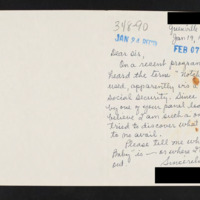 348-90
Greenville
JAN 20 REC'D
Jan. 19, 1
FEB 07
Dear Sir,
On a recent program
heard the term "Notch
used, apparently in
social security. Since
by one of your panel
believe I am such a
tried to discover what
to no avail.
Please tell me wh
Baby" is — or where I
out.
Sincerely